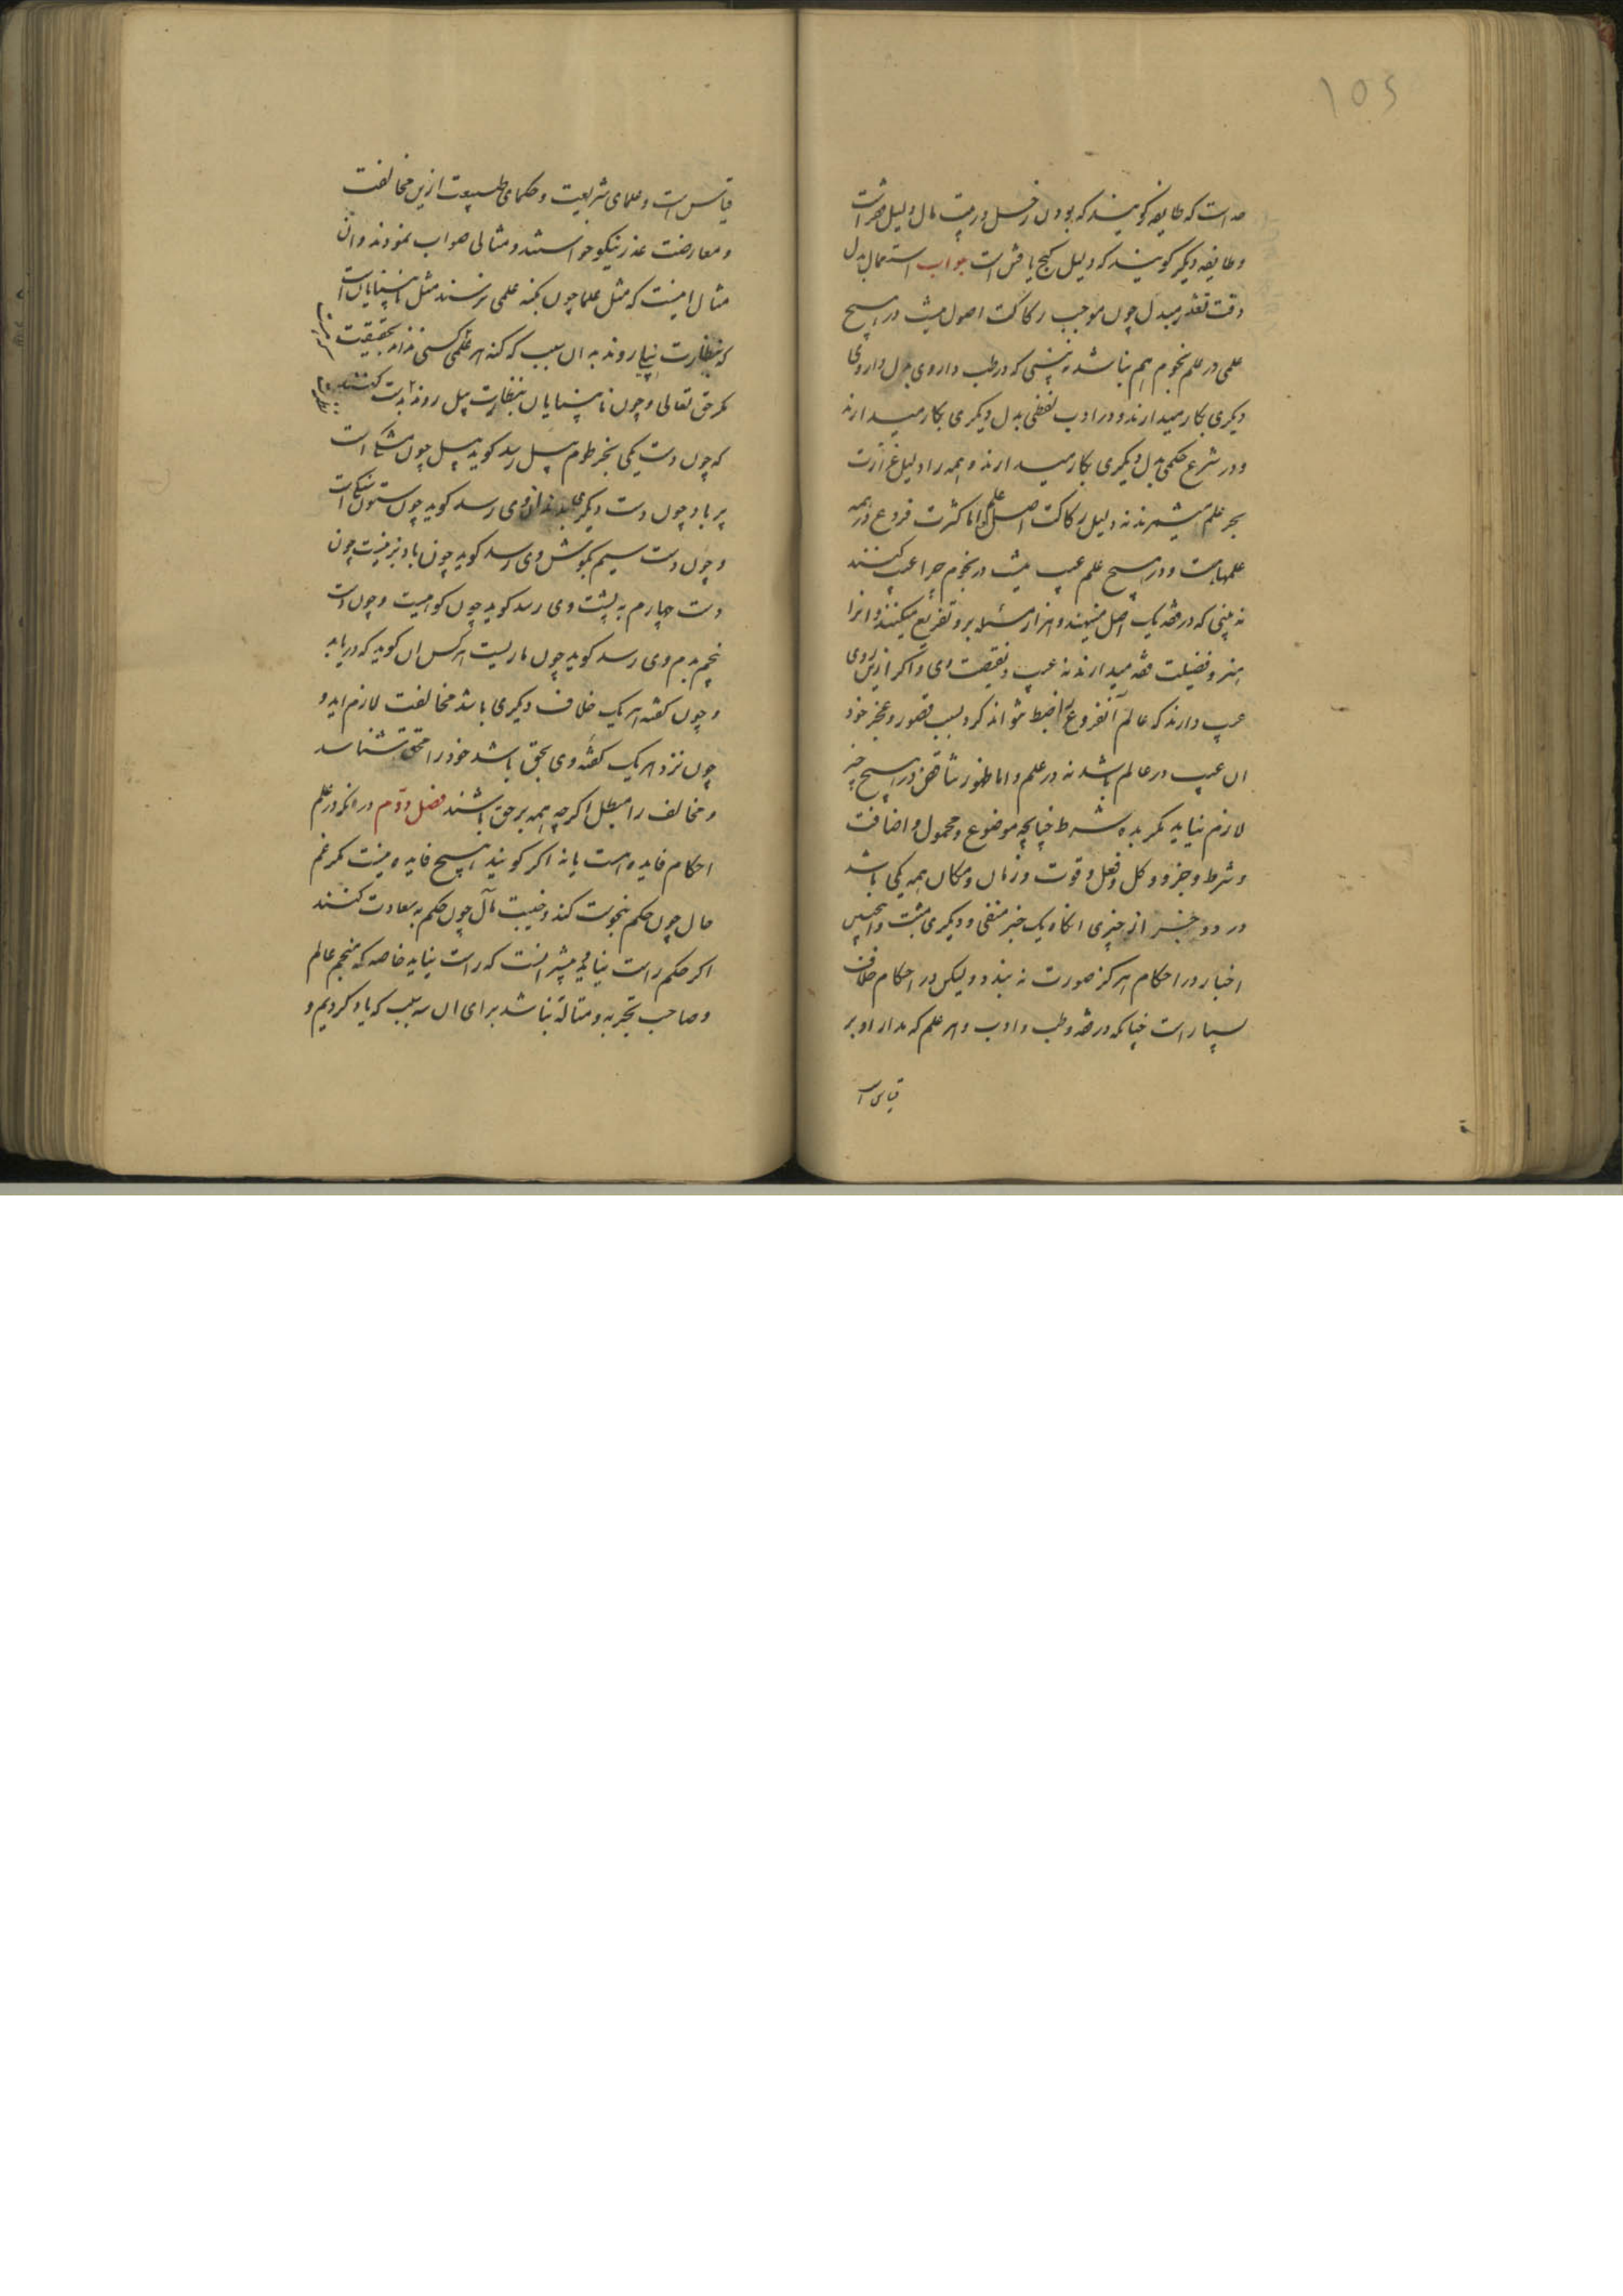 ۱۵۶
است که طایفه کویند که بودن زحل در بیت مال دلیل است
و طایفه دیکر کویند که دلیل کنج یافتن است جواب استعمال بدل
وقت تعذر مبدل چون موجب رکاکت اصول نیست در هیچ
علمی در علم نجوم هم نباشد نه بینی که در طب داروی بدل داروی
دیکری بکار میدارند و در ادب لفظی بدل دیکری بکار میدارند
و در شرع حکمی بدل دیکری بکار میدارند و همه را دلیل غزارت
بحر علم میشمرند نه دلیل رکاکت اصل علم و اما کثرت فروع در همه
علمها هست و در هیچ علم عیب نیست در نجوم چرا عیب کنند
نه بینی که در فقه یک اصل مینهند و هزار مسئله برو تفریع میکنند و انرا
هنر و فضیلت فقه میدارند نه عیب و نقیصت وی و اکر ازین روی
عیب دارند که عالم آنفروع را ضبط نتواند کرد بسبب قصور و عجز خود
ان عیب در عالم باشد نه در علم و اما ظهور تناقض در هیچ چیز
لازم نیاید مکر بده شرط چنانچه موضوع و محمول و اضافت
و شرط و جزو و کل و فعل و قوت و زمان و مکان همه یکی باشد
در دو خبر از چیزی انکاه یک خبر منفی و دیکری مثبت و اینچنین
اخبار در احکام هرکز صورت نه بندد ولیکن در احکام خلاف
بسیار است چنانکه در فقه و طب و ادب و هر علم که مدار او بر
قیاس ا
قیاس است و علمای شریعت و حکمای طبیعت ازین مخالفت
و معارضت عذر نیکو خواستند و مثالی صواب نمودند و ان
مثال اینست که مثل علما چون بکنه علمی نرسند مثل نابینایان است
که بنظارت روند به ان سبب که کنه هر علمی کسی نداند بحقیقت
مکر حق تعالی و چون نابینایان بنظارت پیل روند بدست
که چون دست یکی بخرطوم پیل رسد کوید پیل چون مشک است
پر باد و چون دست دیکر وی رسد کوید چون ستون است
و چون دست سیم بکوش وی رسد کوید چون بادبزنیست چون
دست چهارم به پشت وی رسد کوید چون کوهیست و چون دست
پنجم بدم وی رسد کوید چون ماریست هرکس ان کوید که دریابد
و چون کفته هر یک خلاف دیکری باشد مخالفت لازم اید و
چون نزد هر یک کفته وی بحق باشد خود را محق شناسد
و مخالف را مبطل اکرچه همه بر حق باشند فصل دوم در انکه در علم
احکام فایده هست یا نه اکر کویند هیچ فایده نیست مکر غم
حال چون حکم بنحوست کند و خیبت مآل چون حکم به سعادت کنند
اکر حکم راست نیاید بیشتر انست که راست نیاید خاصه که منجم عالم
و صاحب تجربه و متاله نباشد برای ان سه سبب که یاد کردیم و